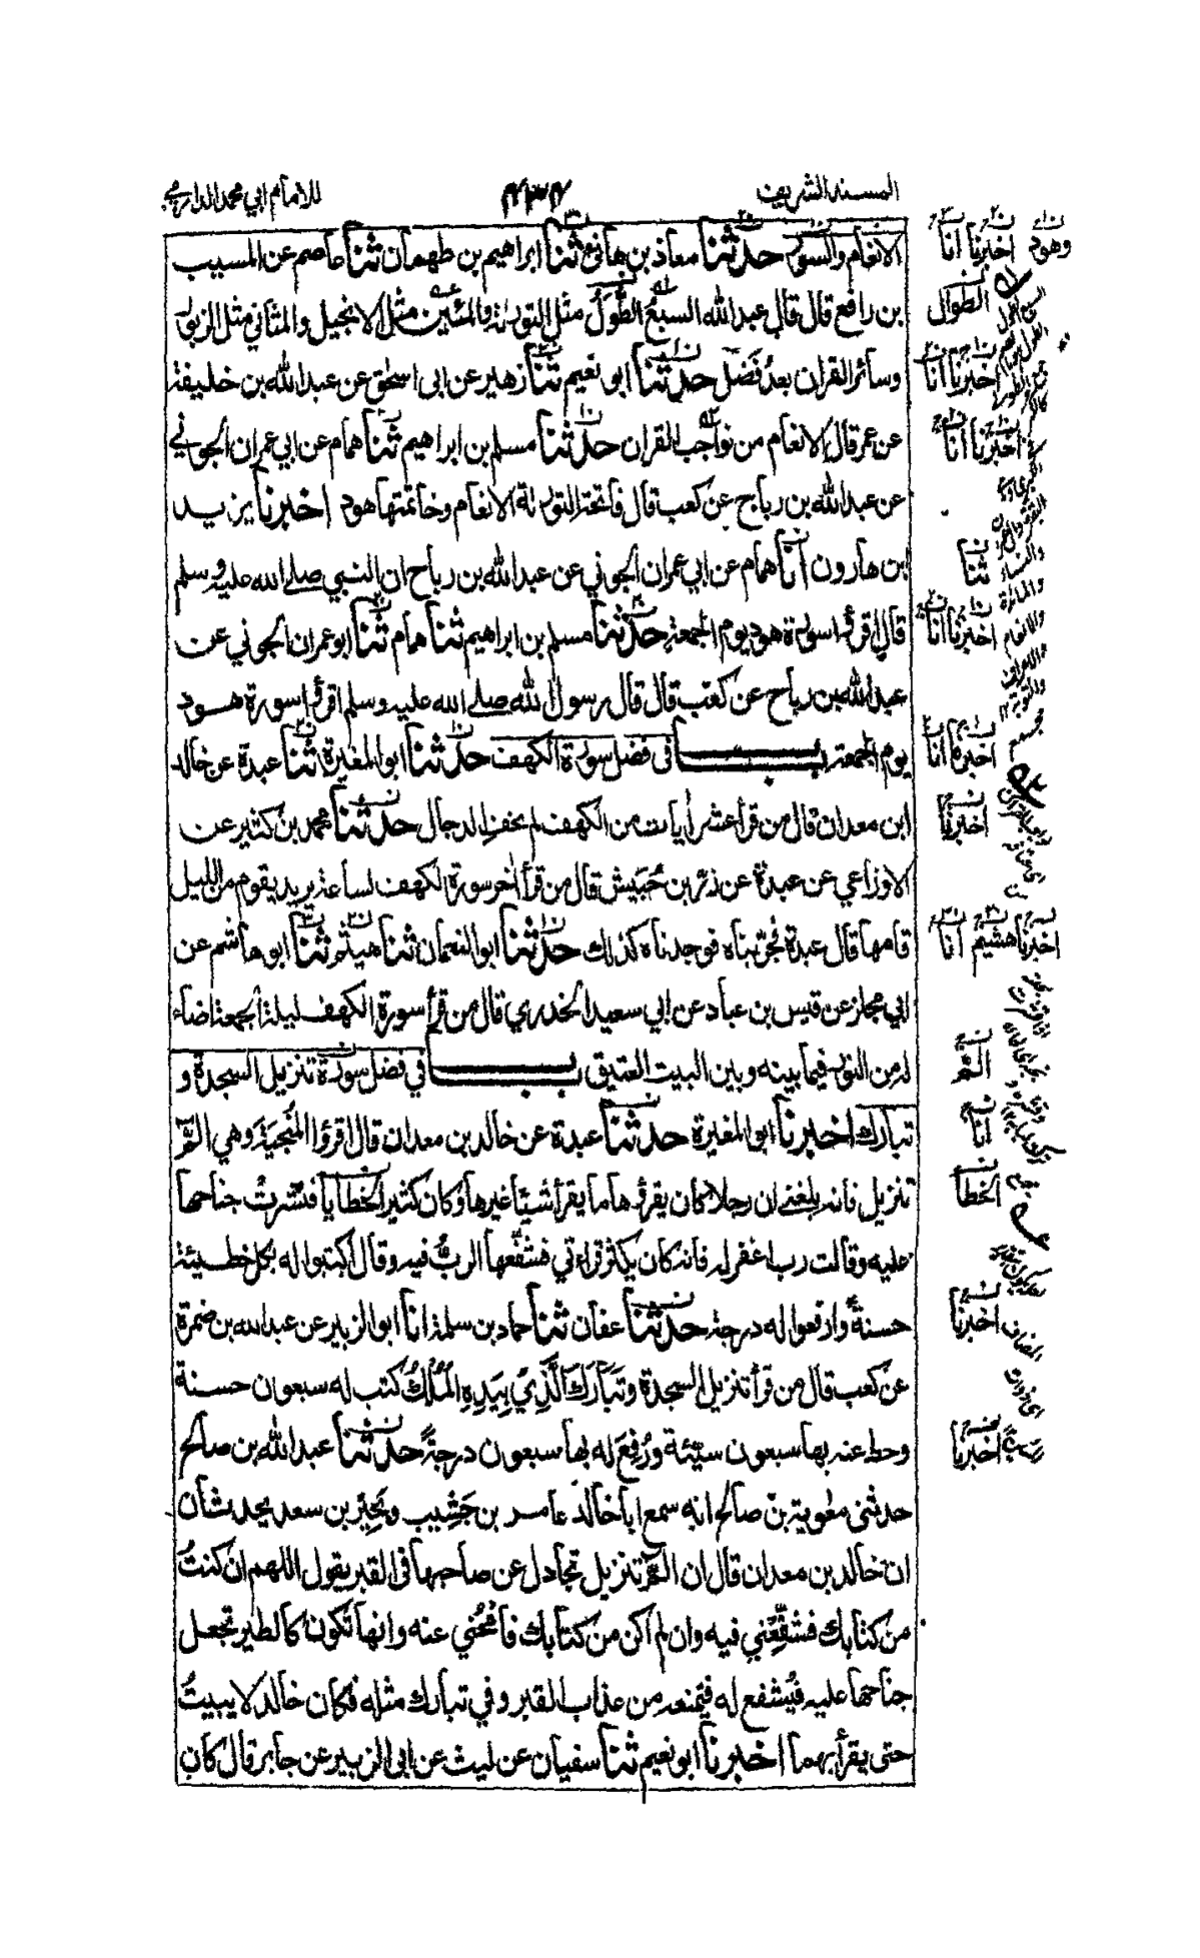 المسند الشريف ٤٣٤ للامام ابي محمد الدارمي
الانعام والسور حدثنا معاذ بن هانئ ثنا ابراهيم بن طهمان ثنا عاصم عن المسيب
بن رافع قال قال عبد الله السبعُ الطُّوَلُ مثل التورىة والمئين مثل الانجيل والمثاني مثل الزبور
وسائر القران بعدُ فَضْل حدثنا ابو نعيم ثنا زهير عن ابى اسحٰق عن عبد الله بن خليفة
عن عمر قال الانعام من نواجب القران حدثنا مسلم بن ابراهيم ثنا همام عن ابي عمران الجوني
عن عبد الله بن رباح عن كعب قال فاتحة التورىة الانعام وخاتمتها هود اخبرنا يزيد
ابن هارون انا همام عن ابي عمران الجوني عن عبد الله بن رباح ان النبي صلى الله عليه وسلم
قال اقرؤا سورة هود يوم الجمعة حدثنا مسلم بن ابراهيم ثنا همام ثنا ابو عمران الجوني عن
عبد الله بن رباح عن كعب قال قال رسول الله صلے الله عليه وسلم اقرؤا سورة هود
يوم الجمعة باب فى فضل سورة الكهف حدثنا ابو المغيرة ثنا عبدة عن خالد
ابن معدان قال من قرأ عشر أيات من الكهف لم يخف الدجال حدثنا محمد بن كثير عن
الاوزاعي عن عبدة عن زر بن حُبَيش قال من قرأ اخر سورة الكهف لساعة يريد يقوم من الليل
قامها قال عبدة فجرّبناه فوجدناه كذلك حدثنا ابو النعمان ثنا هيثم ثنا ابو هاشم عن
ابي مجلز عن قيس بن عباد عن ابي سعيد الخدري قال من قرأ سورة الكهف ليلة الجمعة اضاء
له من النور فيما بينه وبين البيت العتيق باب في فضل سورة تنزيل السجدة و
تبارك اخبرنا ابو المغيرة حدثنا عبدة عن خالد بن معدان قال اقرؤا المُنجِيَة وهي الٓمّٓ
تنزيل فانه بلغني ان رجلا كان يقرؤها ما يقرأ شيئا غيرها وكان كثير الخطايا فنشرتْ جناحها
عليه وقالت رب اغفر له فانه كان يكثر قراءتي فشفّعها الربُّ فيه وقال اكتبوا له بكل خطيئة
حسنةً وارفعوا له درجة حدثنا عفان ثنا حماد بن سلمة انا ابو الزبير عن عبد الله بن ضمرة
عن كعب قال من قرأ تنزيل السجدة وتَبَارَكَ الَّذِيْ بِيَدِهِ المُلْكُ كُتب له سبعون حسنة
وحط عنه بها سبعون سيّئة ورُفِعَ له بها سبعون درجةً حدثنا عبد الله بن صالح
حدثنى معٰوية بن صالح انه سمع ابا خالد عامر بن جَشِيب وبَحِيْر بن سعد يحدثان
ان خالد بن معدان قال ان الٓمّٓ تنزيل تجادل عن صاحبها فى القبر يقول اللهم ان كنتُ
من كتابك فشفِّعْني فيه وان لم اكن من كتابك فامْحُني عنه وانها تكون كالطير تجعل
جناحها عليه فيُشفع له فيمنعه من عذاب القبر وفي تبارك مثله فكان خالد لا يبيتُ
حتى يقرأ بهما اخبرنا ابو نعيم ثنا سفيان عن ليث عن ابى الزبير عن جابر قال كان
وهود اخبرنا انا
الطوال
اخبرنا انا
اخبرنا انا
ثنا
اخبرنا انا
اخبرنا انا
اخبرنا
اخبرنا هشيم انا
الٓمّٓ
انا
الخطا
اخبرنا
اخبرنا